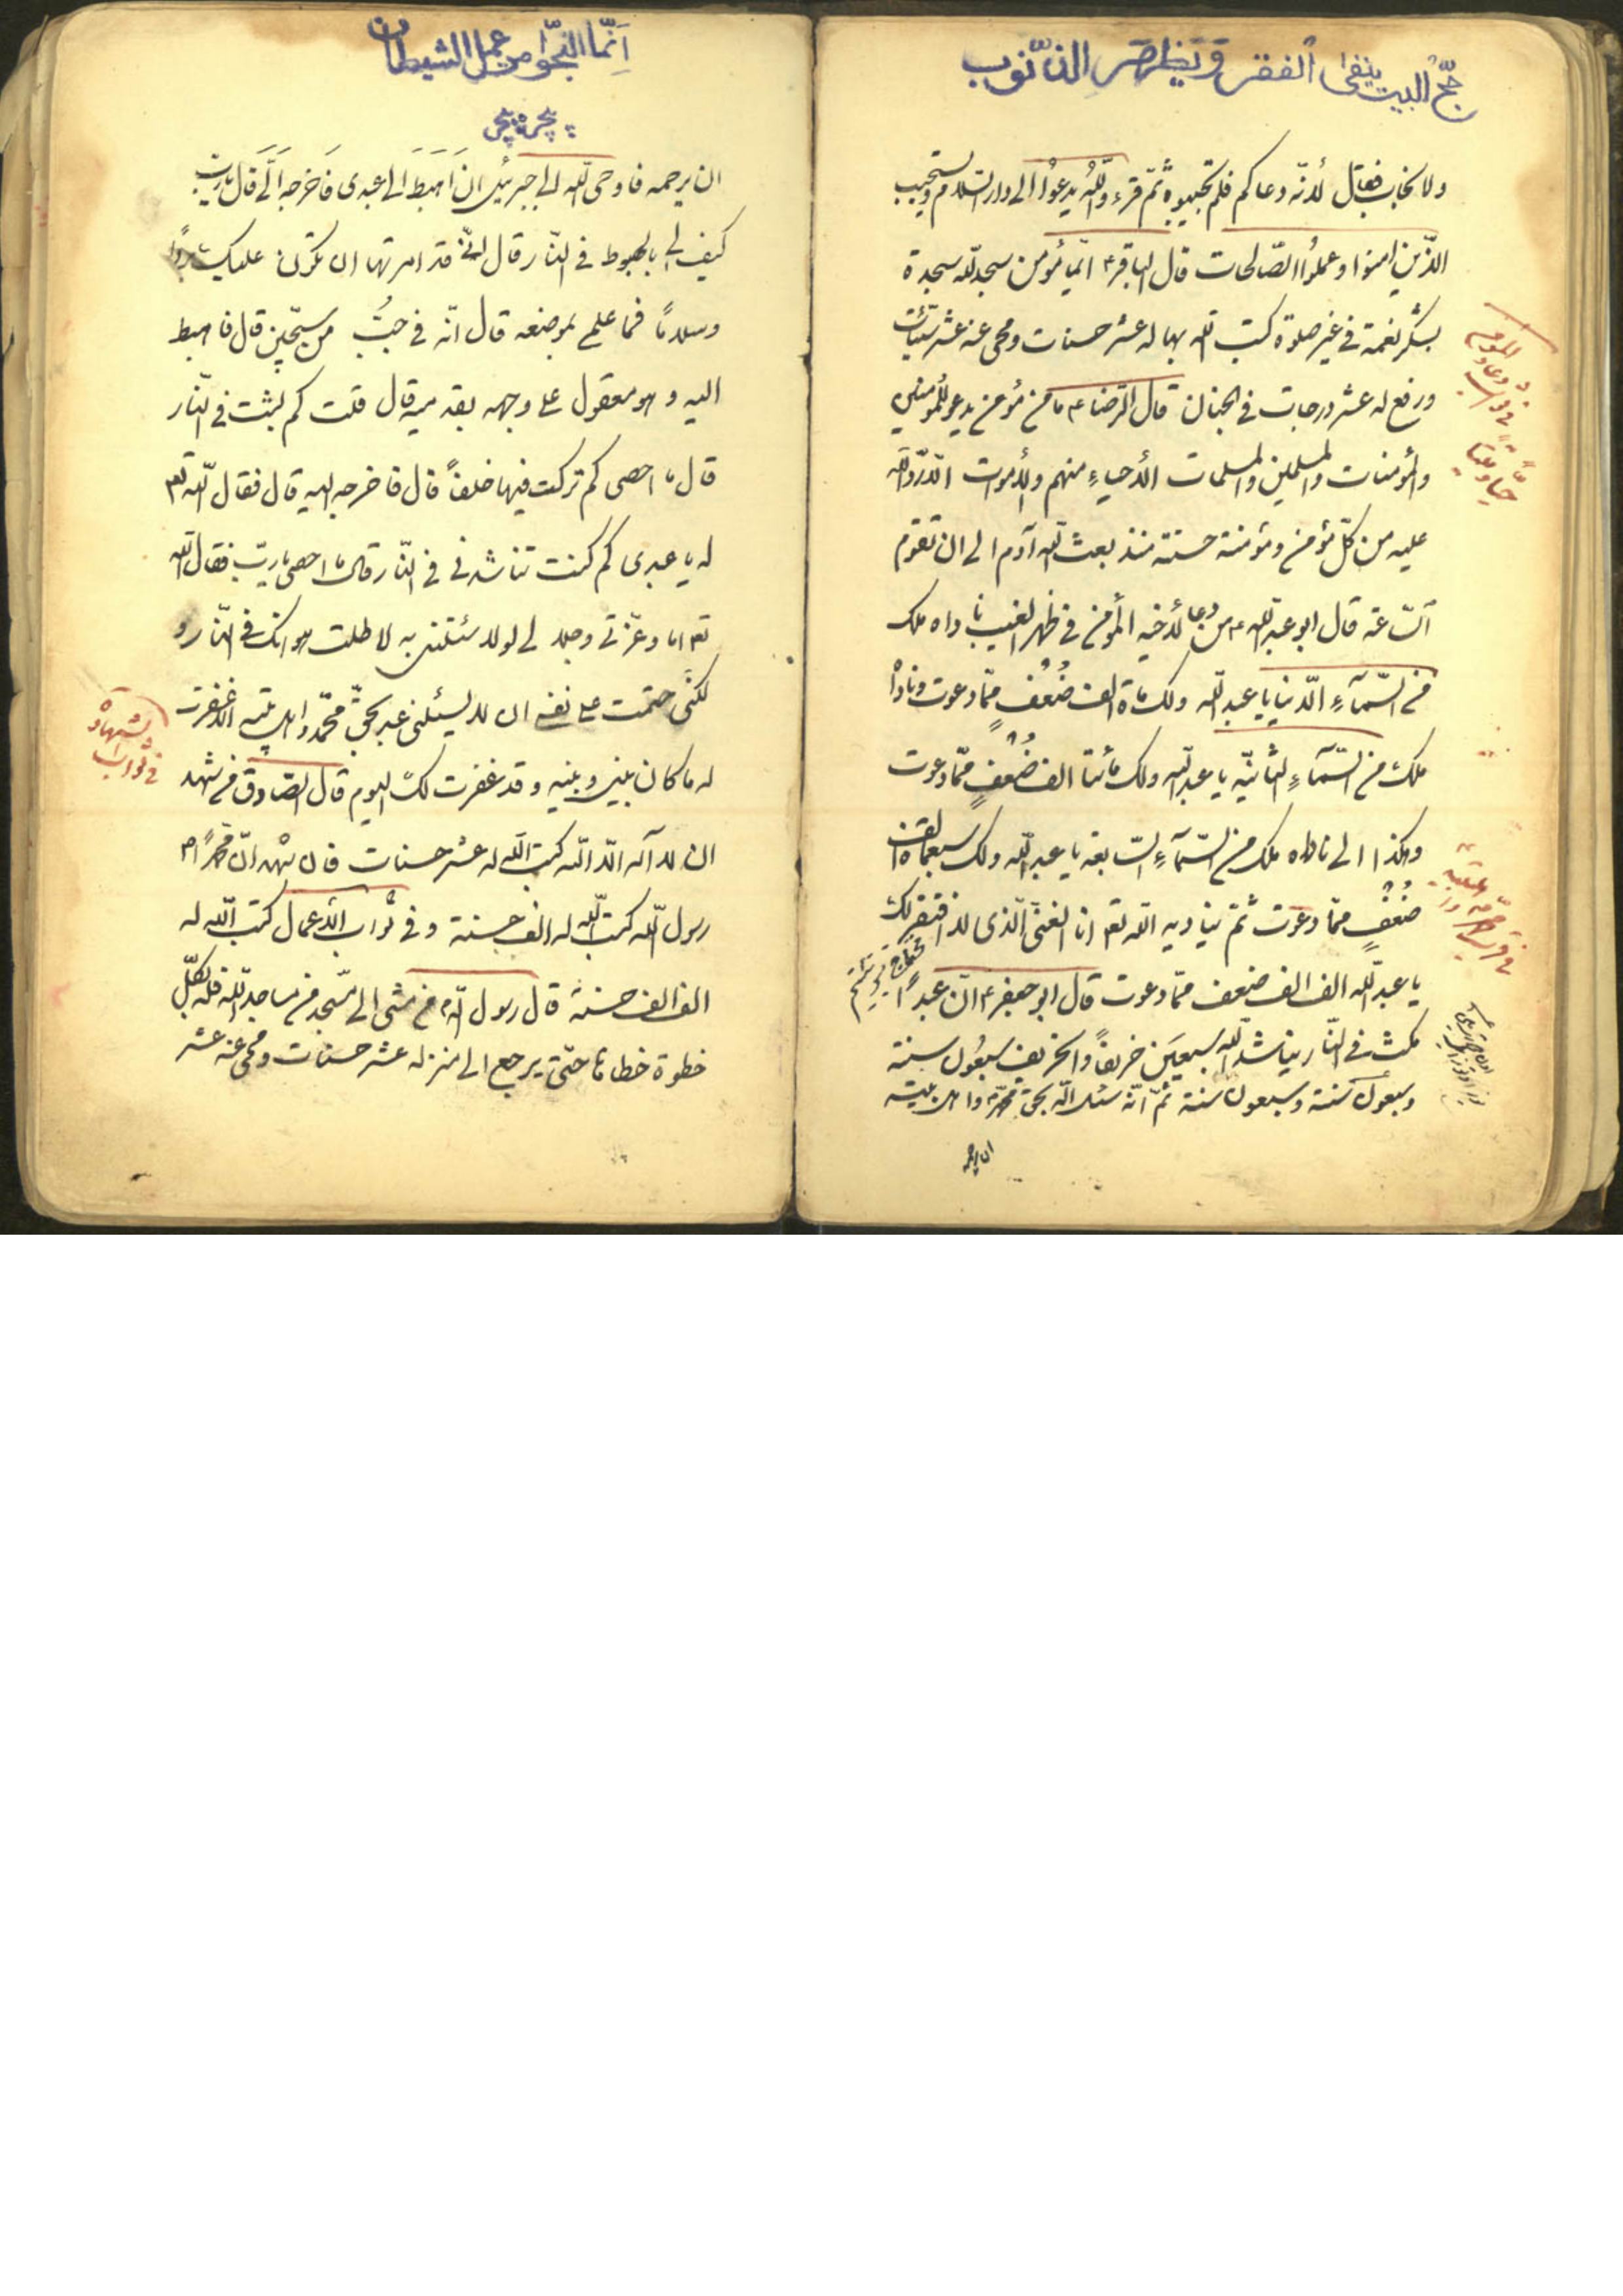 حجّ البيت ينفى الفقر و يطهر الذنوب
ولا يخاب فقال لأنّه دعاكم فلم تجيبوه ثمّ قرء واللّه يدعوُا الى دار السّلام ويستجيب
الذّين امنوا وعملوُا الصّالحات قال الباقر ع ايّما مؤمن سجد للّه سجدة
بشكر نعمة فى غير صلوة كتب اللّه بها له عشر حسنات ومحى عنه عشر سيّئات
ورفع له عشر درجات فى الجنان قال الرّضا ع ما من مؤمن يدعو للمؤمنين
والمؤمنات والمسلمين والمسلمات الأحياءِ منهم والأموات الّا ردّ اللّه
عليه من كلّ مؤمن ومؤمنة حسنة منذ بعث اللّه آدم الى ان تقوم
السّاعة قال ابو عبد اللّه ع من دعا لأخيه المؤمن فى ظهر الغيب ناداه ملك
من السّمآءِ الدّنيا يا عبد اللّه ولك مائة الف ضُعُف ممّا دعوت وناداه
ملك من السّمآءِ الثانيّة يا عبد اللّه ولك مأتا الف ضُعُفٍ ممّا دعوت
وهكذا الى ناداه ملك من السّمآءِ السّابعة يا عبد اللّه ولك سبعمائة الف
ضُعُفٍ ممّا دعوت ثمّ يناديه اللّه تعا انا الغنىّ الّذى لا افتقر لك
يا عبد اللّه الف الف ضعف ممّا دعوت قال ابو جعفر ع انّ عبداً
مكث فى النّار يناشد اللّه سبعين خريفاً والخريف سبعُون سنة
وسبعون سنة وسبعون سنة ثمّ انّه سئل اللّه بحقّ محمّد واهل بيته
ان يرحمه
فى ثواب دعاء
حيّاً وميّتاً
انّما النجوا من عمل الشيطان
ان يرحمه فاوحى اللّه الى جبرئيل ان اهبط الى عبدى فاخرجه الىّ قال يا ربّ
كيف لى بالهبوط فى النّار قال انّى قد امرتها ان تكون عليك برداً
وسلاماً فما علمى بموضعه قال انّه فى جبّ من سجّين قال فاهبط
اليه وهو معقول على وجهه بقدميه قال قلت كم لبثت فى النّار
قال ما احصى كم تركت فيها خلفاً قال فاخرجه اليه قال فقال اللّه تعا
له يا عبدى كم كنت تناشدنى فى النّار قال ما احصى يا ربّ فقال اللّه
تعا اما وعزّتى وجلالى لولا ما سئلتنى به لاطلت هوانك فى النّار و
لكنّى حتمت على نفسى ان لا يسئلنى عبد بحقّ محمّد واهل بيته الّا غفرت
له ما كان بينى وبينه و قد غفرت لك اليوم قال الصّادق من شهد
ان لا اله الّا اللّه كتب اللّه له عشر حسنات فان شهد انّ محمّداً
رسول اللّه كتب اللّه له الف حسنة و فى ثواب الأعمال كتب اللّه له
الف الف حسنة قال رسول اللّه من مشى الى مسجد من مساجد اللّه فله بكلّ
خطوة خطاها حتّى يرجع الى منزله عشر حسنات ومحى عنه عشر
فى ثواب الشهادة